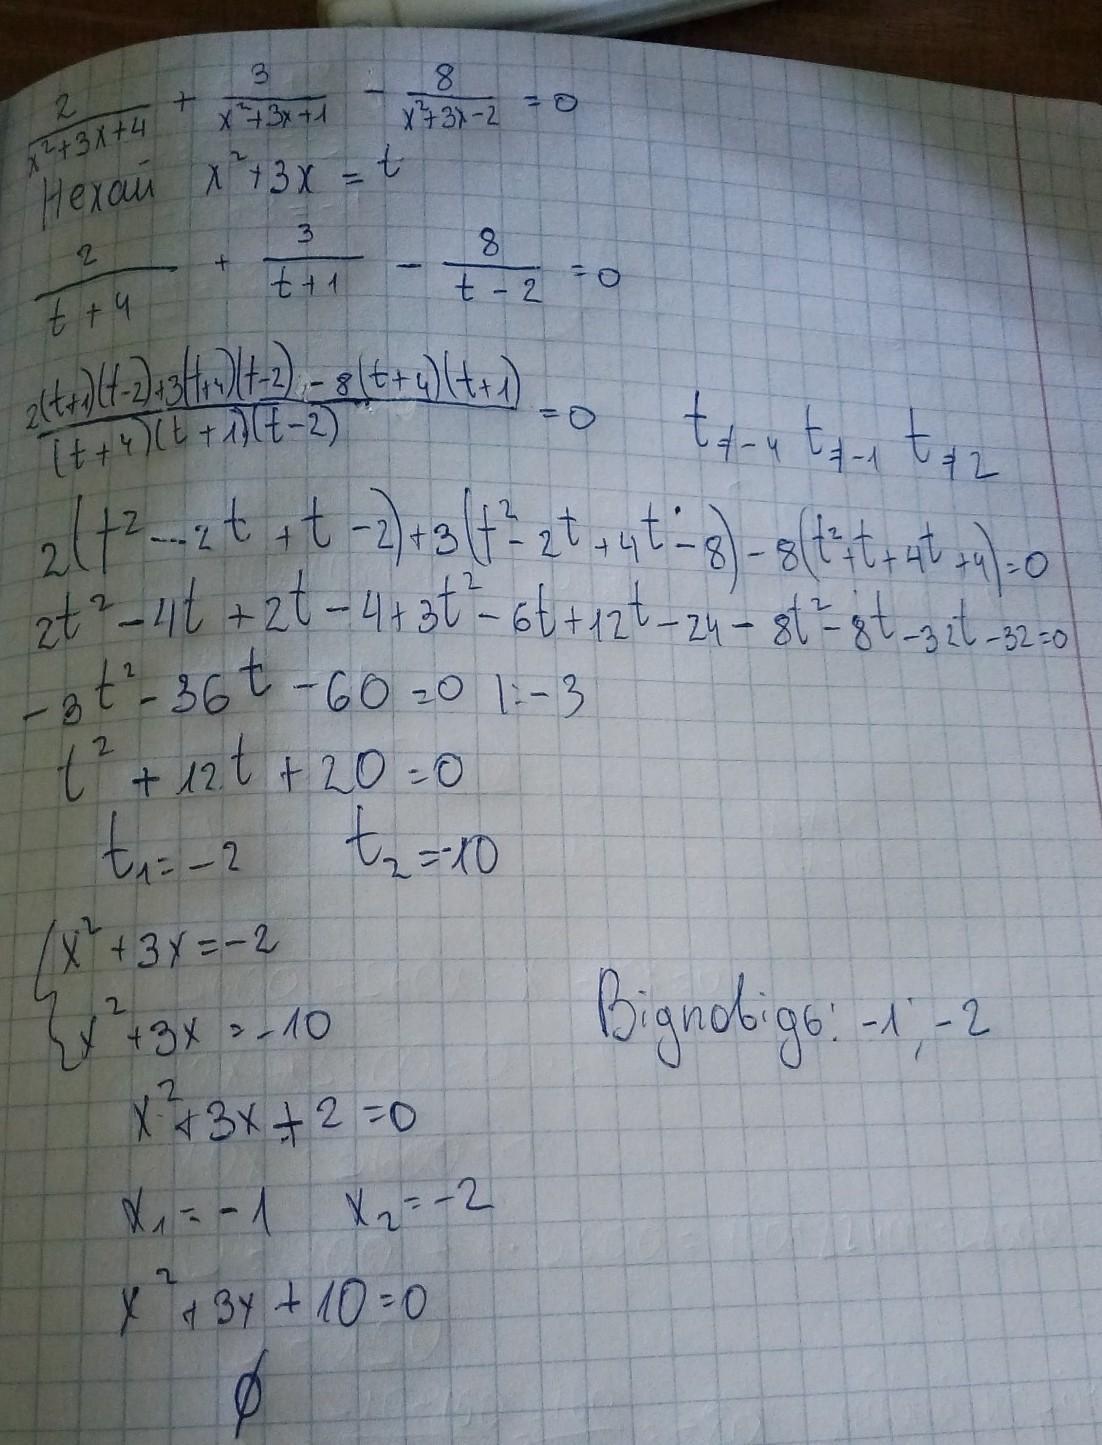 2/(x²+3x+4) + 3/(x²+3x+1) - 8/(x²+3x-2) = 0
Нехай x²+3x = t
2/(t+4) + 3/(t+1) - 8/(t-2) = 0
(2(t+1)(t-2)+3(t+4)(t-2)-8(t+4)(t+1))/((t+4)(t+1)(t-2)) = 0 t≠-4 t≠-1 t≠2
2(t²-2t+t-2)+3(t²-2t+4t-8)-8(t²+t+4t+4)=0
2t²-4t+2t-4+3t²-6t+12t-24-8t²-8t-32t-32=0
-3t²-36t-60=0 |:-3
t²+12t+20=0
t₁=-2 t₂=-10
{x²+3x=-2
x²+3x=-10
Відповідь: -1; -2
x²+3x+2=0
x₁=-1 x₂=-2
x²+3x+10=0
∅